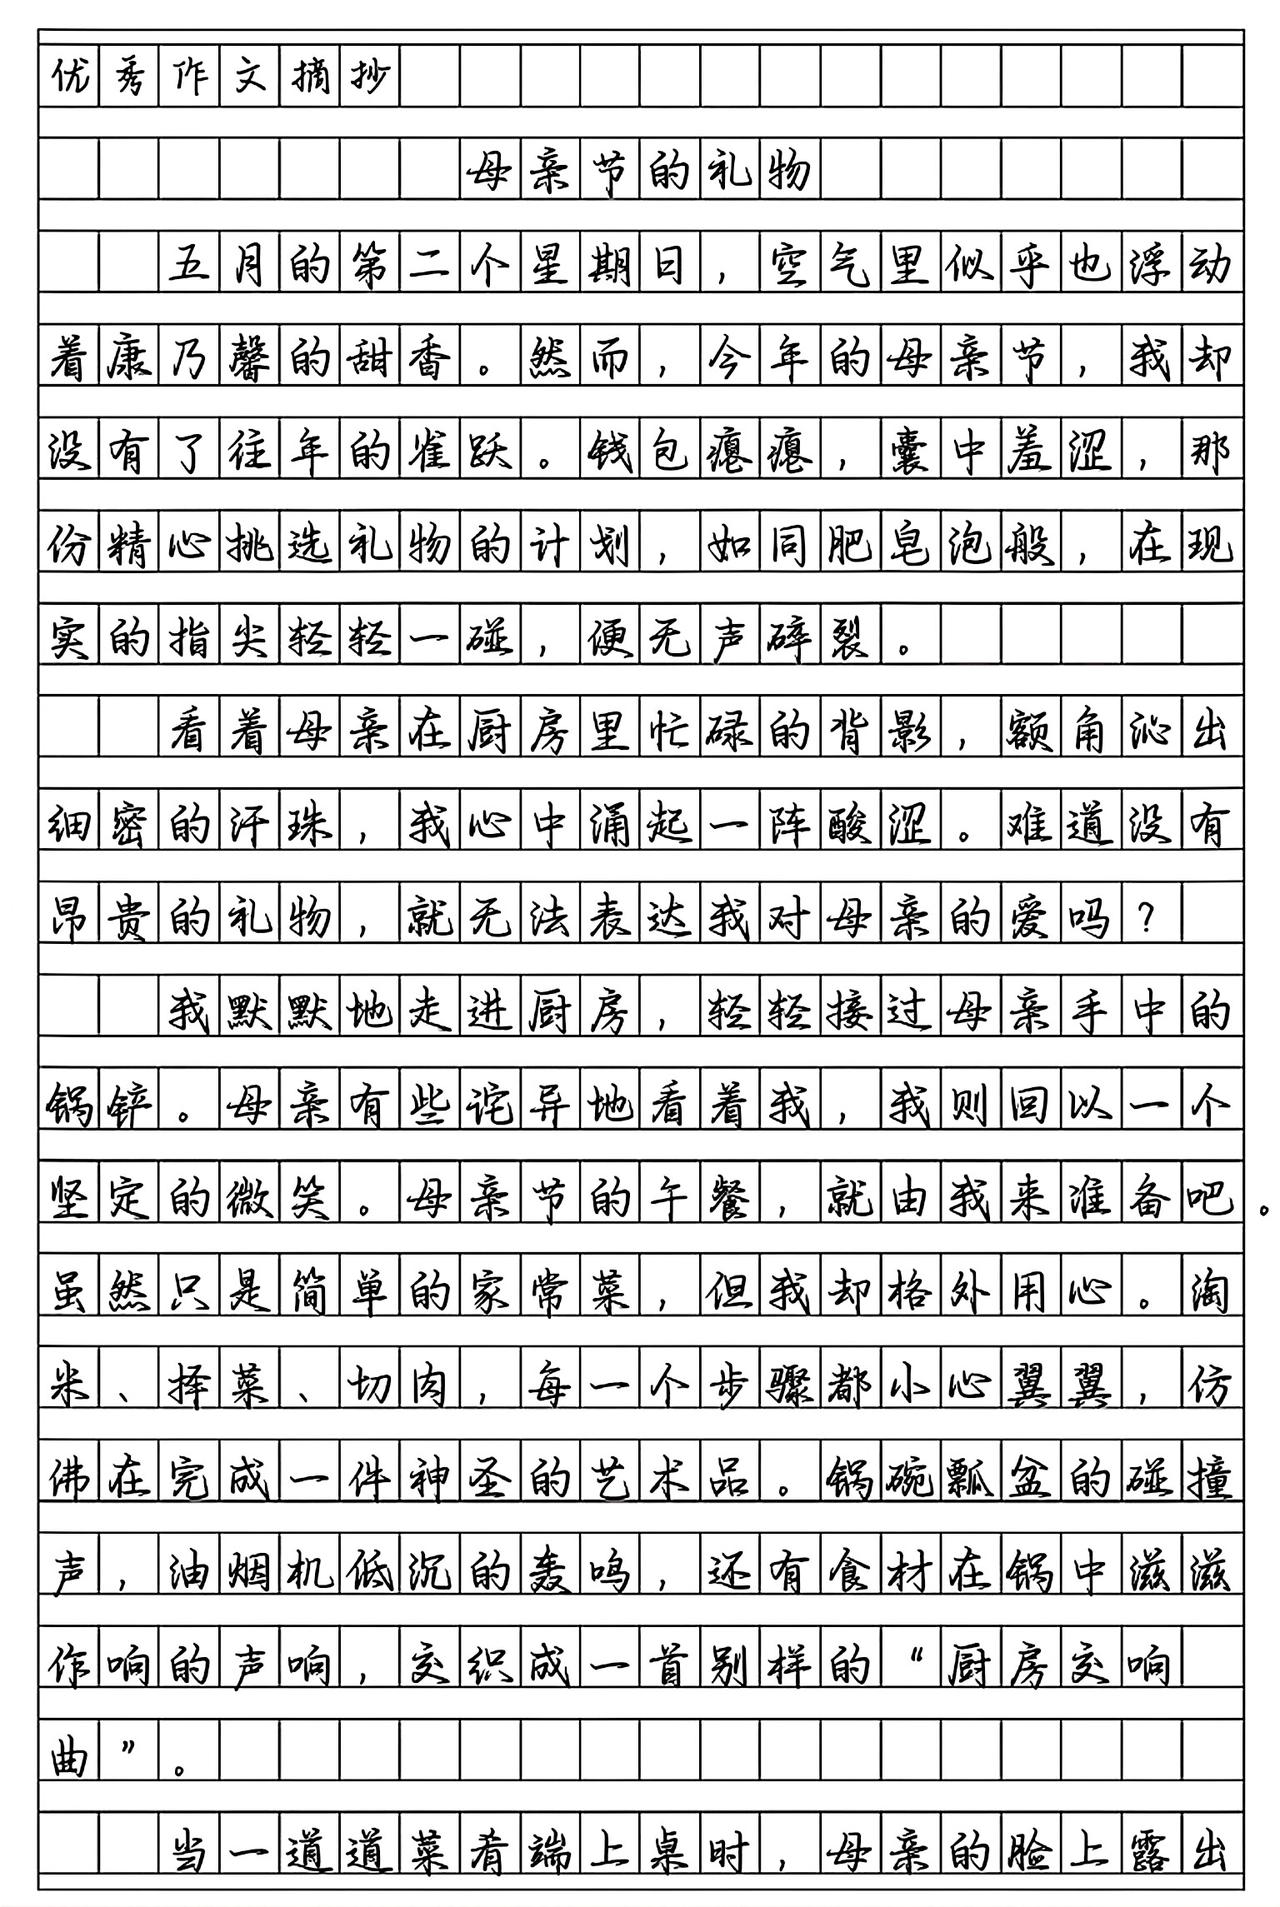 优秀作文摘抄
母亲节的礼物
五月的第二个星期日，空气里似乎也浮动
着康乃馨的甜香。然而，今年的母亲节，我却
没有了往年的雀跃。钱包瘪瘪，囊中羞涩，那
份精心挑选礼物的计划，如同肥皂泡般，在现
实的指尖轻轻一碰，便无声碎裂。
看着母亲在厨房里忙碌的背影，额角沁出
细密的汗珠，我心中涌起一阵酸涩。难道没有
昂贵的礼物，就无法表达我对母亲的爱吗？
我默默地走进厨房，轻轻接过母亲手中的
锅铲。母亲有些诧异地看着我，我则回以一个
坚定的微笑。母亲节的午餐，就由我来准备吧。
虽然只是简单的家常菜，但我却格外用心。淘
米、择菜、切肉，每一个步骤都小心翼翼，仿
佛在完成一件神圣的艺术品。锅碗瓢盆的碰撞
声，油烟机低沉的轰鸣，还有食材在锅中滋滋
作响的声响，交织成一首别样的“厨房交响
曲”。
当一道道菜肴端上桌时，母亲的脸上露出